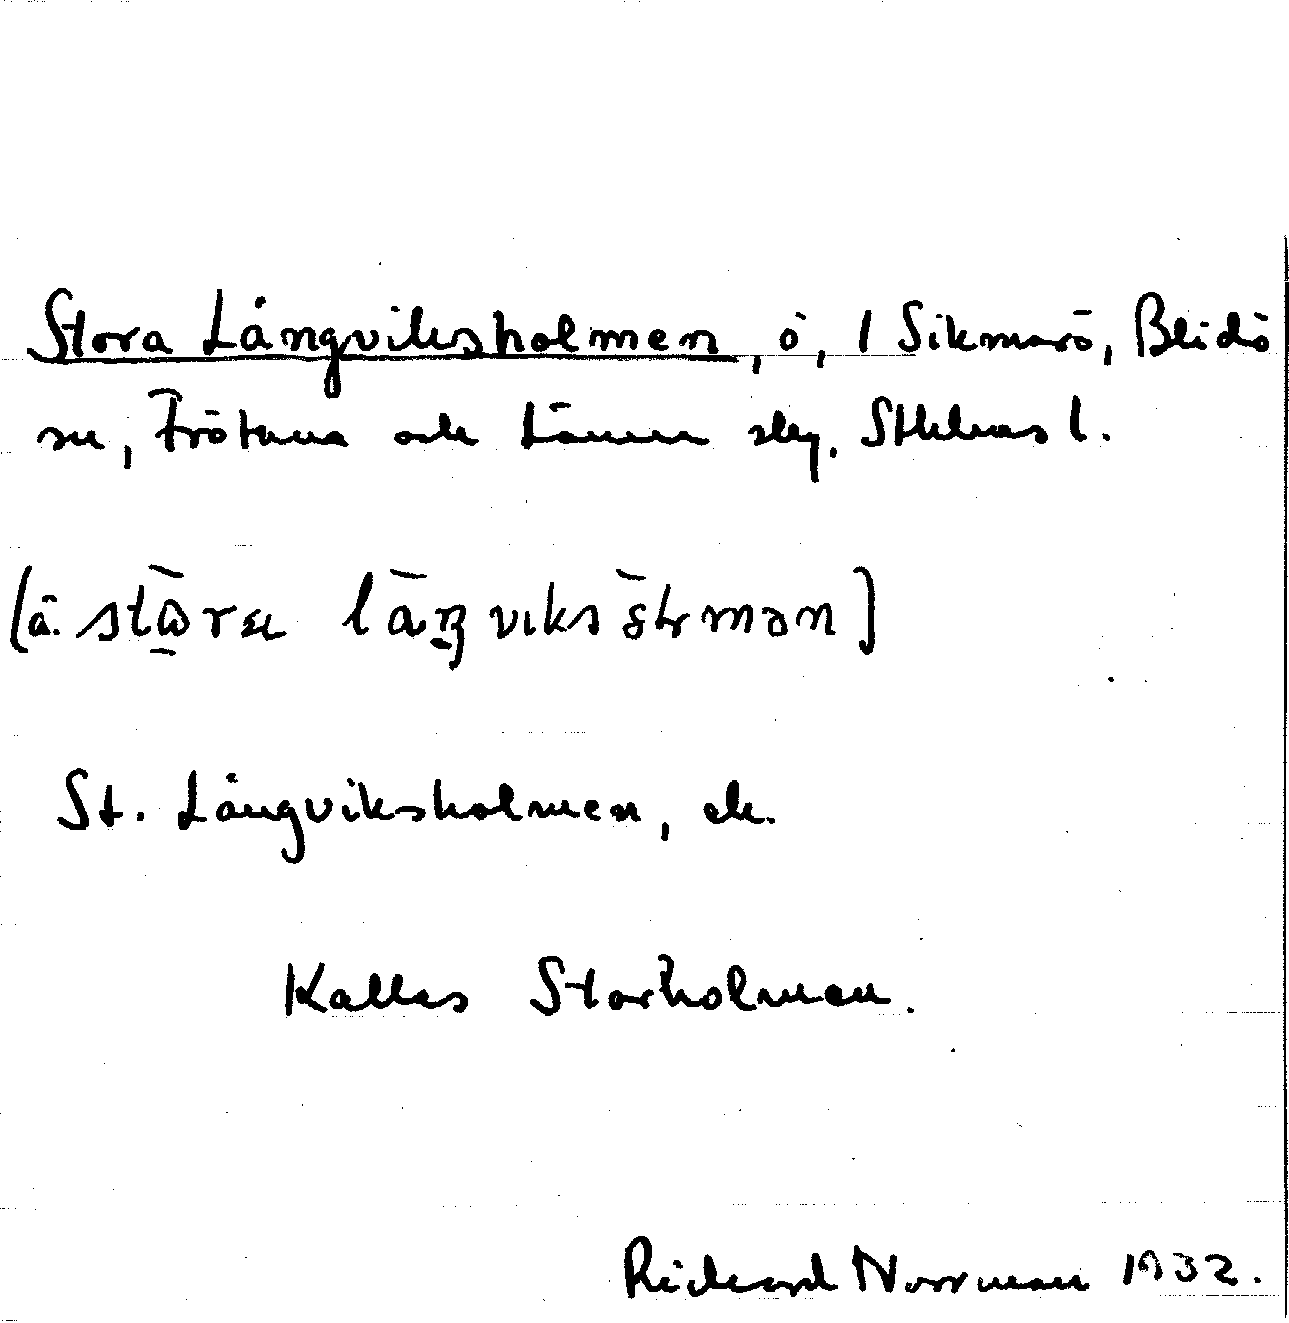 Stora Långviksholmen, ö, 1 Sikmarö, Blidö
sn, Frötuna och Länna skg. Sthlms l.
St. Långviksholmen, ek.
Kallas Storholmen.
Richard Norrman 1932.